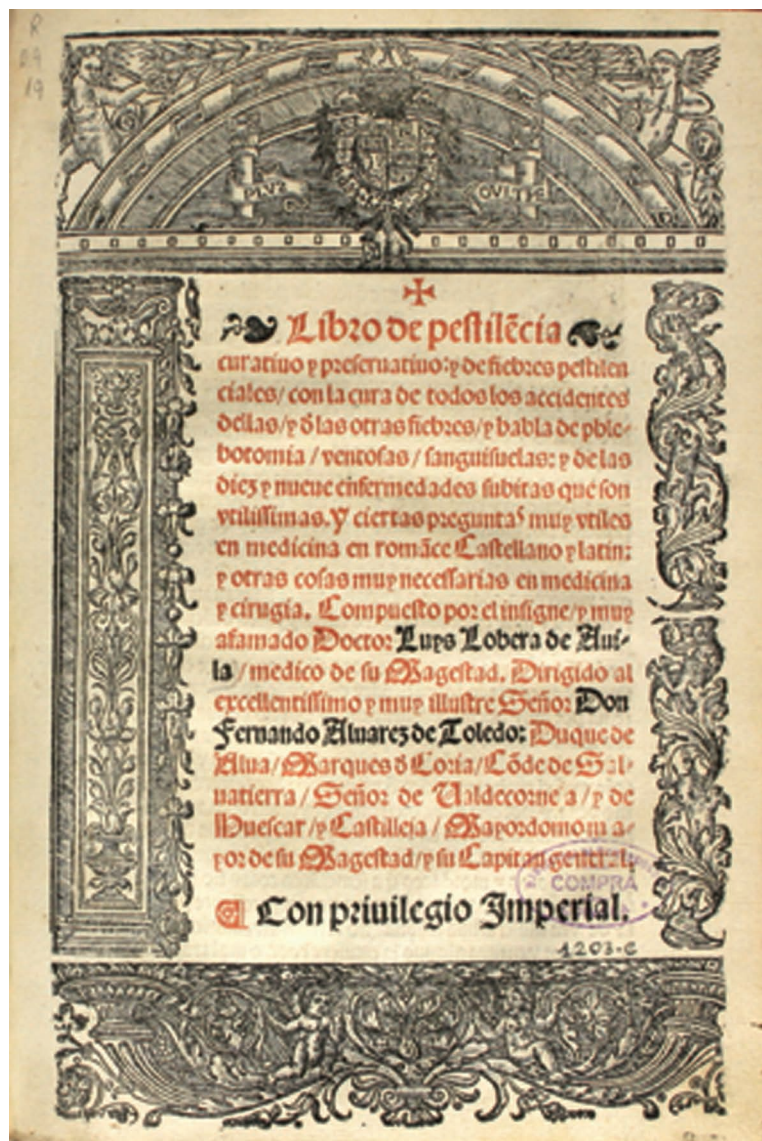 R
19
PLVS
OVLTRE
✠
Libro de pestilẽcia
curatiuo y preseruatiuo: y de fiebres pestilen
ciales/ con la cura de todos los accidentes
dellas/ y δ las otras fiebres/ y habla de phle-
botomia / ventosas / sanguisuelas: y de las
diez y nueue enfermedades subitas que son
vtilissimas. Y ciertas preguntas muy vtiles
en medicina en romãce Castellano y latin:
y otras cosas muy necessarias en medicina
y cirugia. Compuesto por el insigne/ y muy
afamado Doctor Luys Lobera de Aui-
la / medico de su Magestad. Dirigido al
excellentissimo y muy illustre Señor Don
Fernando Aluarez de Toledo: Duque de
Alua/ Marques δ Coria/ Cõde de Sal-
uatierra / Señor de Ualdecorneja/ y de
Huescar/ y Castilleja / Mayordomo ma-
yor de su Magestad/ y su Capitan general.
COMPRA
¶ Con priuilegio Imperial.
1203-C